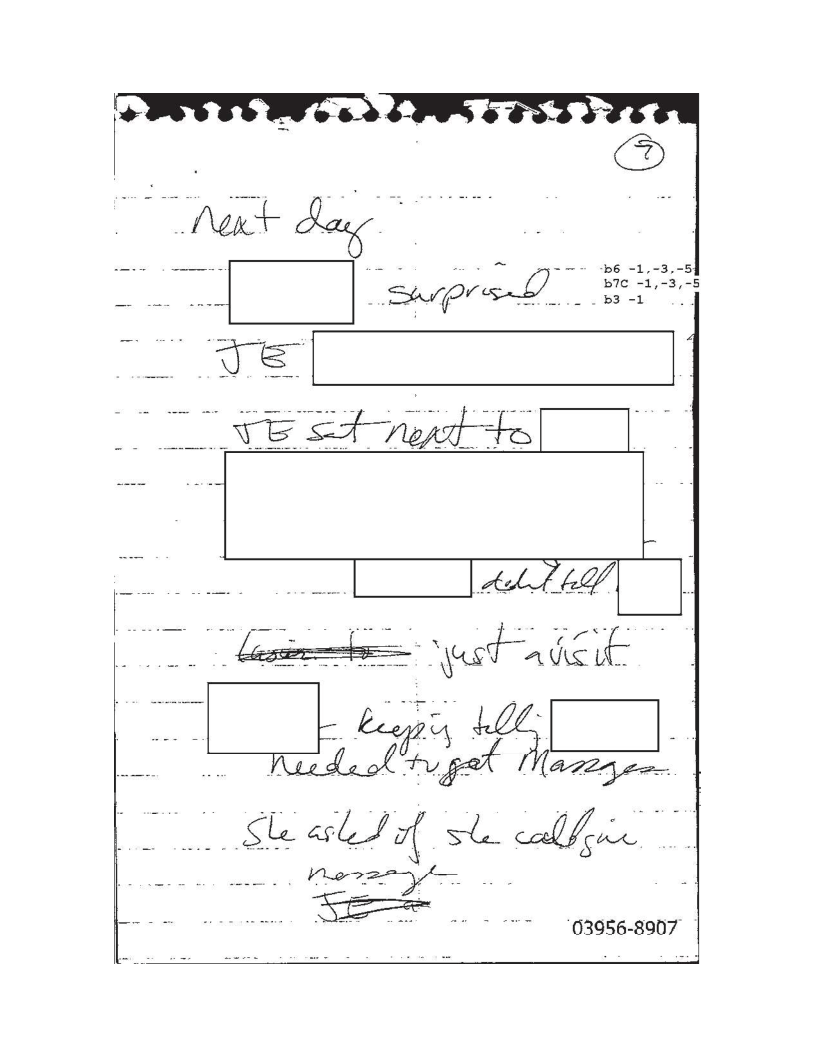 9
next day
b6 -1,-3,-5
surprised
b7C -1,-3,-5
b3 -1
JE
JE sat next to
didn't tell
just a visit
keeping telling
needed to get Massages
She asked if she could give
massage
JE
03956-8907